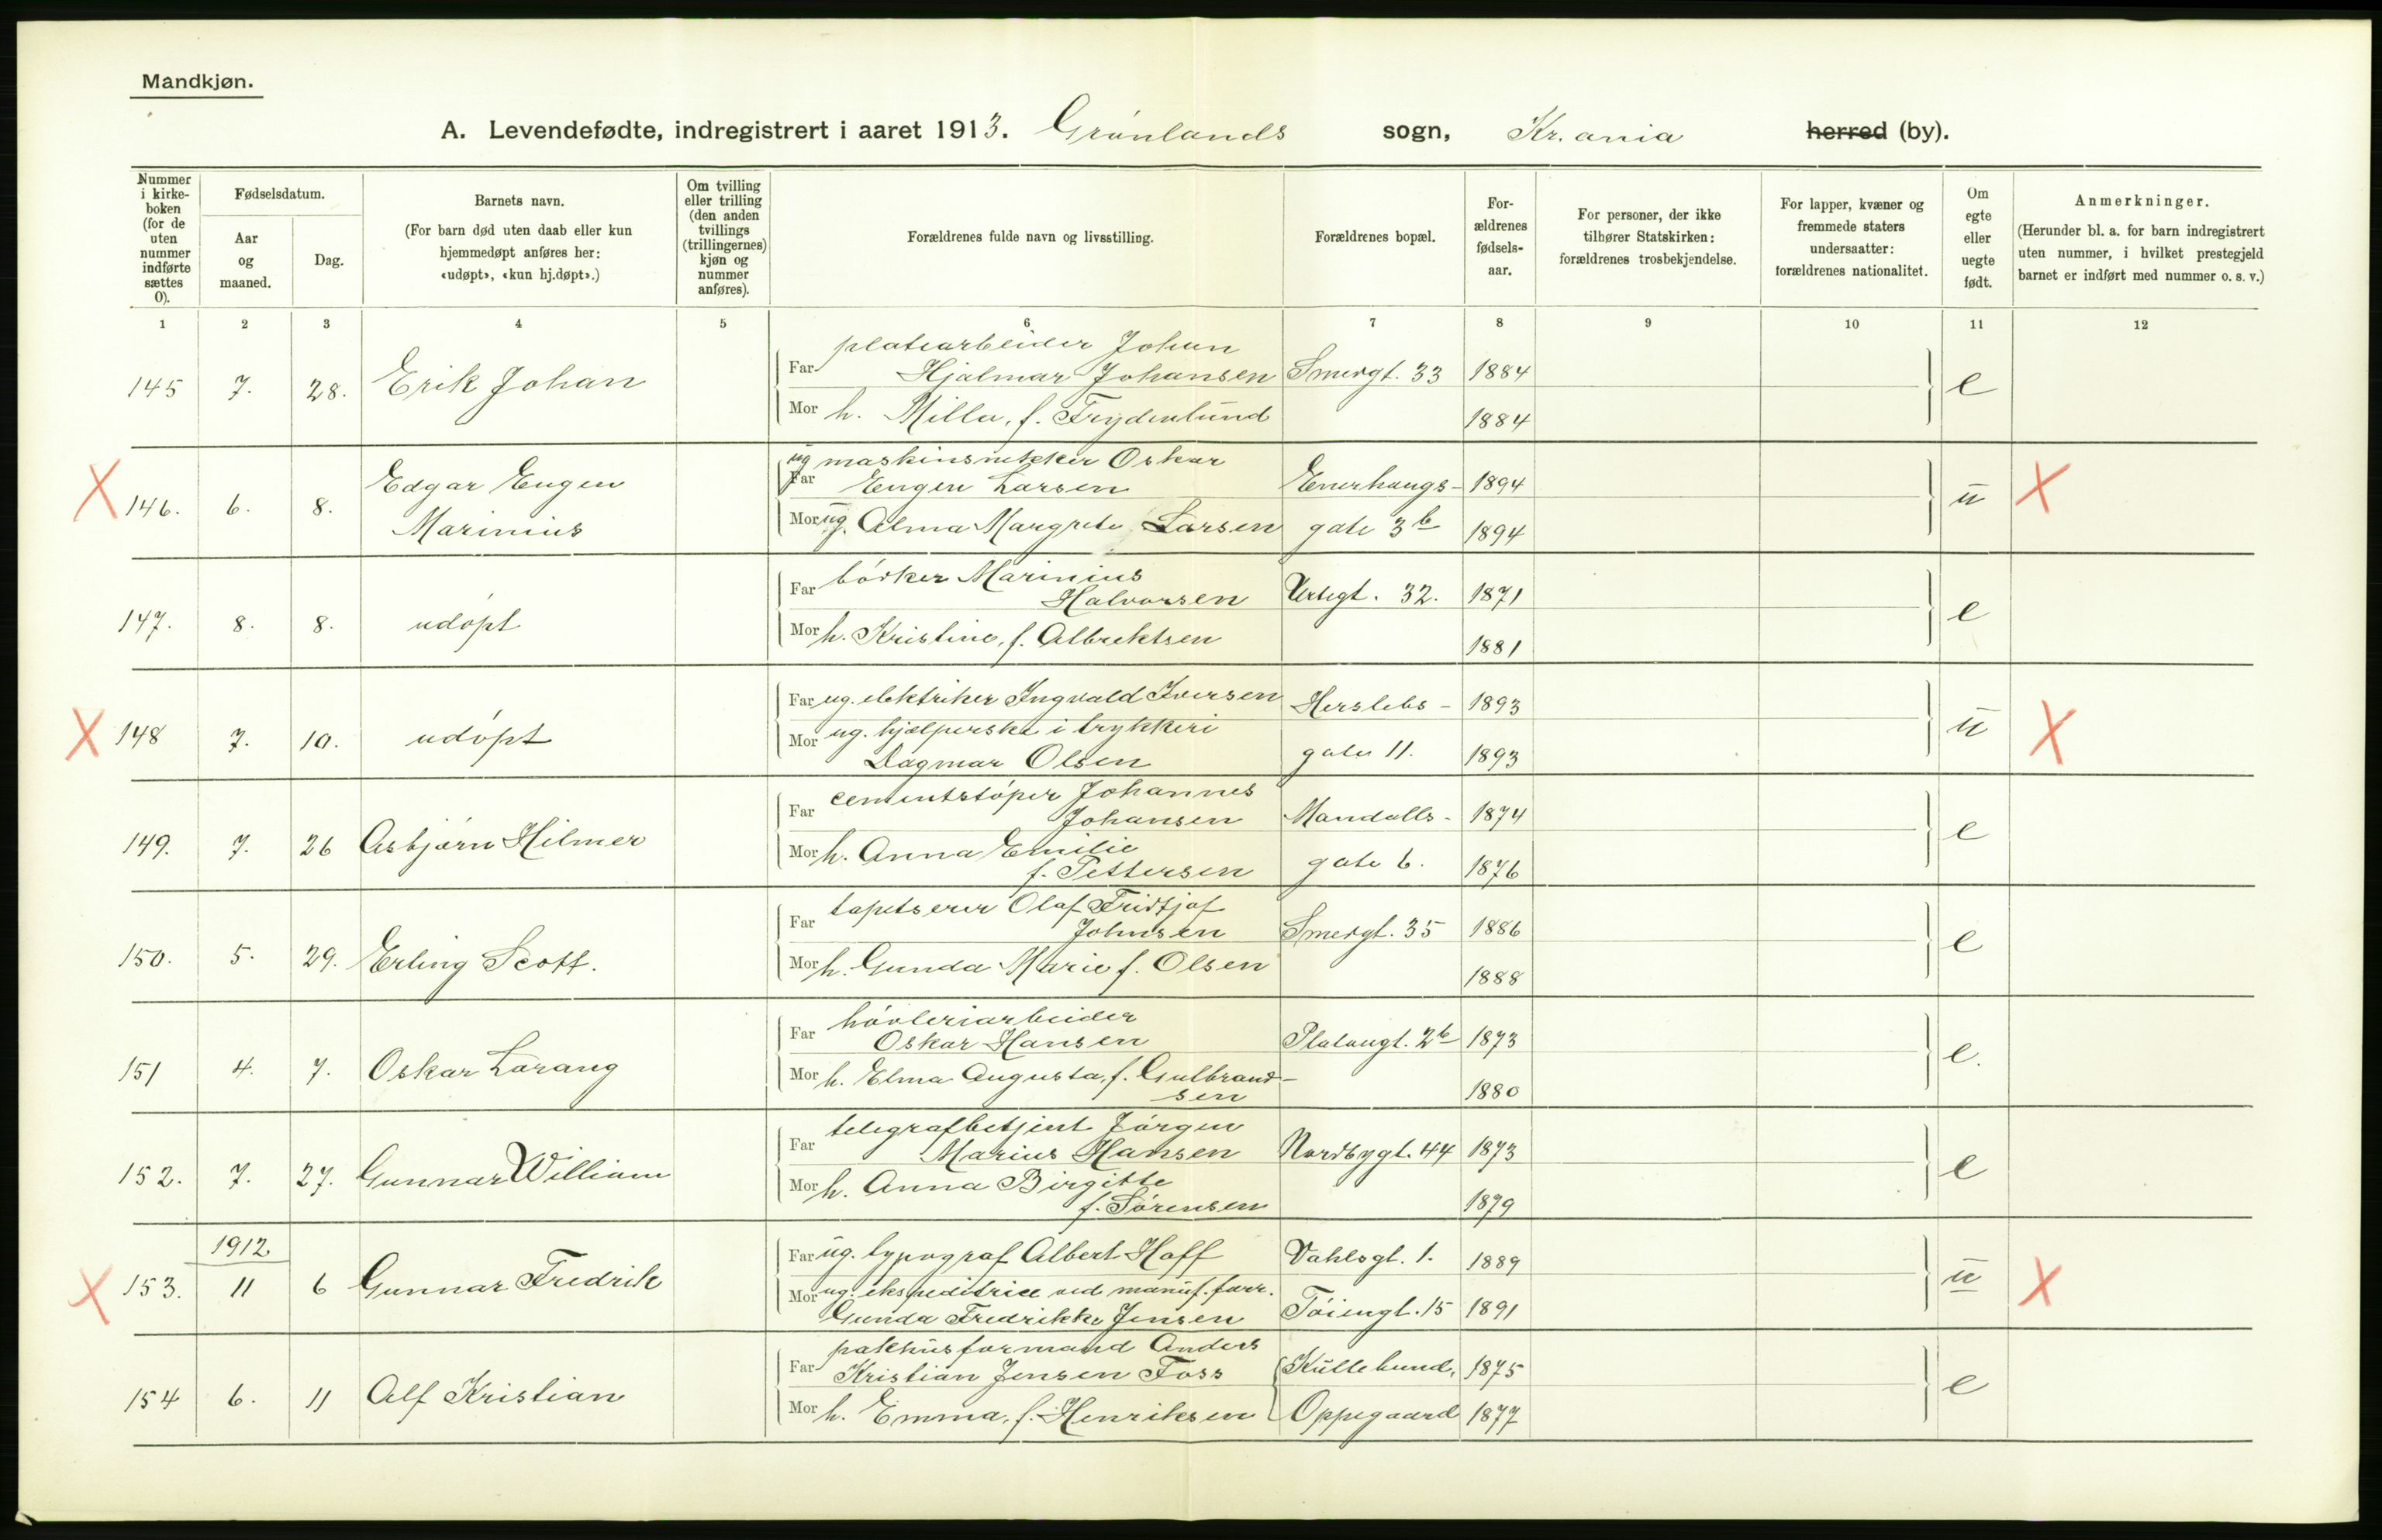 Mandkjøn.
A. Levendefødte, indregistrert i aaret 1913. Grønlands sogn, Kr.ania herred (by).
Nummer i kirke-boken (for de uten nummer indførte sættes 0).
Fødselsdatum.
Aar og maaned.
Dag.
Barnets navn.
(For barn død uten daab eller kun hjemmedøpt anføres her: «udøpt», «kun hj.døpt».)
Om tvilling eller trilling (den anden tvillings (trillingernes) kjøn og nummer anføres).
Forældrenes fulde navn og livsstilling.
Forældrenes bopæl.
For-ældrenes fødsels-aar.
For personer, der ikke tilhører Statskirken: forældrenes trosbekjendelse.
For lapper, kvæner og fremmede staters undersaatter: forældrenes nationalitet.
Om egte eller uegte født.
Anmerkninger.
(Herunder bl. a. for barn indregistrert uten nummer, i hvilket prestegjeld barnet er indført med nummer o. s. v.)
1 2 3 4 5 6 7 8 9 10 11 12
145 7. 28. Erik Johan
Far platearbeider Johan
Hjalmar Johansen Smedgt. 33 1884 e
Mor h. Milla, f. Frydenlund 1884
X 146. 6. 8. Edgar Eugen
Marinius
Far ug maskinsnekker Oskar
Eugen Larsen Enerhaugs- 1894 u X
Mor ug. Alma Margrete Larsen gate 3b 1894
147. 8. 8. udøpt
Far bødker Marinius
Halvorsen Urtegt. 32. 1871 e
Mor h. Kristine, f. Albrektsen 1881
X 148 7. 10. udøpt
Far ug. elektriker Ingvald Iversen Herslebs- 1893 u X
Mor ug. hjælperske i trykkeri
Dagmar Olsen gate 11. 1893
149. 7. 26 Asbjørn Hilmer
Far cementstøper Johannes
Johansen Mandalls- 1874 e
Mor h. Anna Emilie
f. Pettersen gate 6. 1876
150. 5. 29. Erling Scott.
Far tapetserer Olaf Fridtjof
Johnsen Smedgt. 35 1886 e
Mor h. Gunda Marie f. Olsen 1888
151 4. 7. Oskar Lorang
Far høvleriarbeider
Oskar Hansen Platougt. 2b 1873 e.
Mor h. Elma Augusta, f. Gulbrand-
sen 1880
152. 7. 27. Gunnar William
Far telegrafbetjent Jørgen
Marius Hansen Nordbygt. 44 1873 e
Mor h. Anna Birgitte
f. Sørensen 1879
1912
X 153. 11 6 Gunnar Fredrik
Far ug. typograf Albert Hoff Vahlsgt. 1. 1889 u X
Mor ug. ekspeditrice ved manuf. forr.
Gunda Fredrikke Jensen Tøiengt. 15 1891
154 6. 11 Alf Kristian
Far pakhusformand Anders
Kristian Jensen Foss Kullebund, 1875 e
Mor h. Emma, f. Henriksen Oppegaard 1877